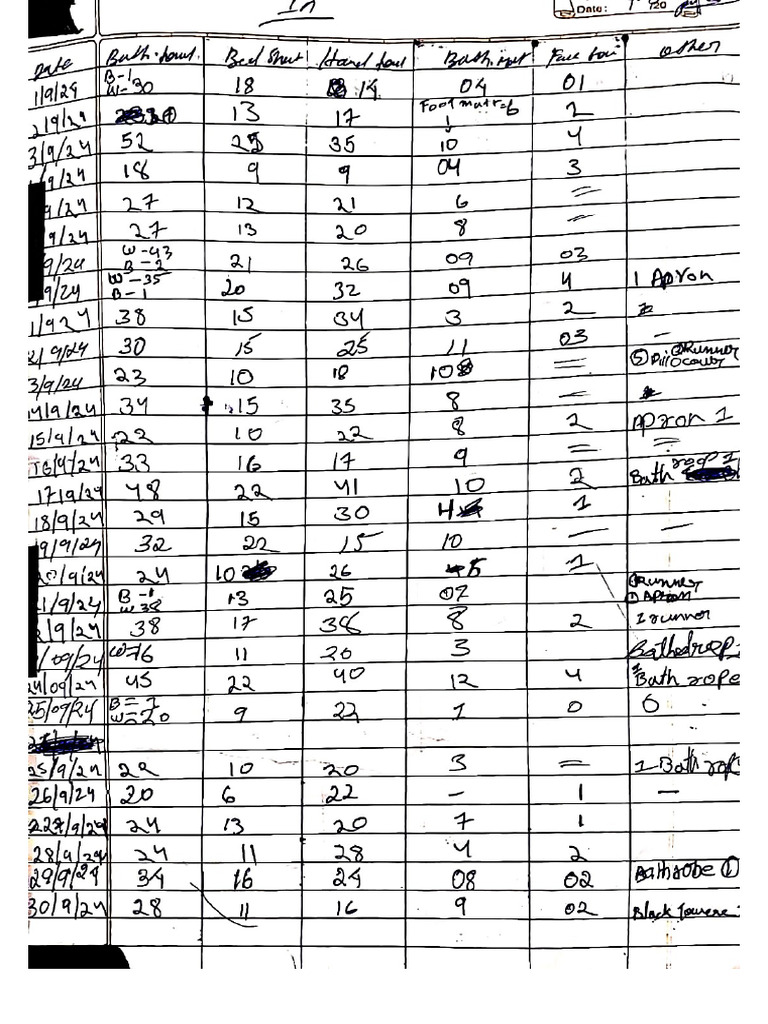 In
Date: 1 20
Date Bath. towl. Bed Sheet Hand towl Bath. mat Face tow other
1/9/24 B-1 W-30 18 14 04 01
2/9/24 13 17 Foot matt=6 1 2
3/9/24 52 25 35 10 4
/9/24 18 9 9 04 3
9/24 27 12 21 6 =
/9/24 27 13 20 8 =
9/24 W-43 B-2 21 26 09 03
9/24 W-35 B-1 20 32 09 4 1 Apron
1/9 24 38 15 34 3 2
2/9/24 30 15 25 11 03 -
3/9/24 23 10 18 10 = ② Runner ⑤ Pillocover
14/9/24 34 15 35 8 -
15/9/24 22 10 22 8 2 Apron 1
16/9/24 33 16 17 9 = =
17/9/24 48 22 41 10 2 Bath rop 1
18/9/24 29 15 30 4 1
9/9/24 32 22 15 10 - -
20/9/24 24 10 26 5 1
1/9/24 B-1 W-38 13 25 07 ① Runner ① Apron
2/9/24 38 17 38 8 2 1 runner
/09/24 W=16 11 20 3 Bathedrop.
24/09/24 45 22 40 12 4 1 Bath rope
25/09/24 B=7 W=20 9 22 1 0 0
25/9/24 22 10 20 3 = 1 Bath rop
26/9/24 20 6 22 - 1 -
227/9/24 24 13 20 7 1
28/9/24 24 11 28 4 2
29/9/24 34 16 24 08 02 Bathrobe ①
30/9/24 28 11 16 9 02 Black